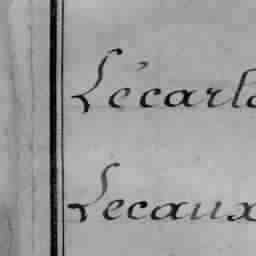 Lécarla
Lecaux